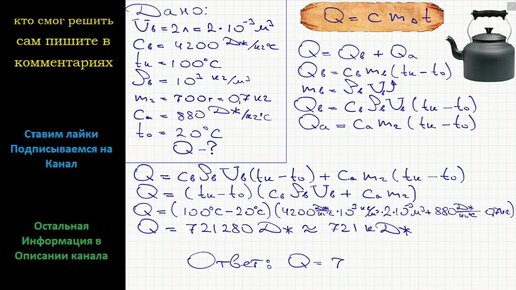 кто смог решить
сам пишите в
комментариях
Ставим лайки
Подписываемся на
Канал
Остальная
Информация в
Описании канала
Дано:
Vв = 2л = 2·10⁻³ м³
Cв = 4200 Дж/кг°C
tк = 100°C
ρв = 10³ кг/м³
mг = 700г = 0,7 кг
Cа = 880 Дж/кг°C
t₀ = 20°C
Q - ?
Q = c m Δt
Q = Qв + Qа
Qв = Cв mв (tк - t₀)
mв = ρв Vв
Qв = Cв ρв Vв (tк - t₀)
Qа = Cа mг (tк - t₀)
Q = Cв ρв Vв (tк - t₀) + Cа mг (tк - t₀)
Q = (tк - t₀)(Cв ρв Vв + Cа mг)
Q = (100°C - 20°C)(4200 Дж/кг°C · 10³ кг/м³ · 2·10⁻³ м³ + 880 Дж/кг°C · 0,7кг)
Q = 721280 Дж ≈ 721 кДж
Ответ: Q = 7